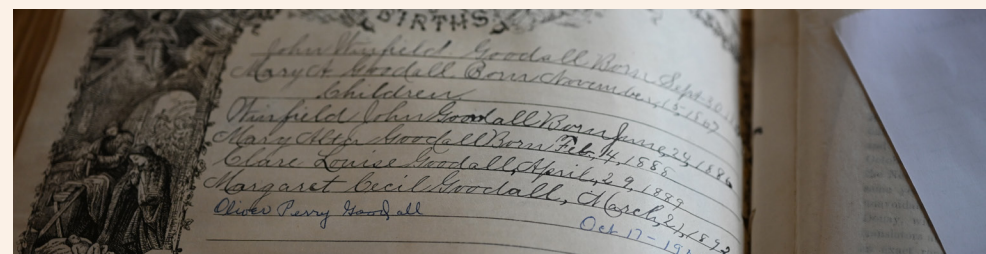 BIRTHS
John Winfield Goodall Born Sept. 30,
Mary A Goodall. Born November, 15, 1867
Children
Winfield John Goodall Born June, 24, 1886
Mary Goodall Born Feb, 4, 1888
Clare Louise Goodall, April, 29, 1889
Margaret Cecil Goodall, March, 21, 1892
Oliver Perry Goodall
Oct 17-19